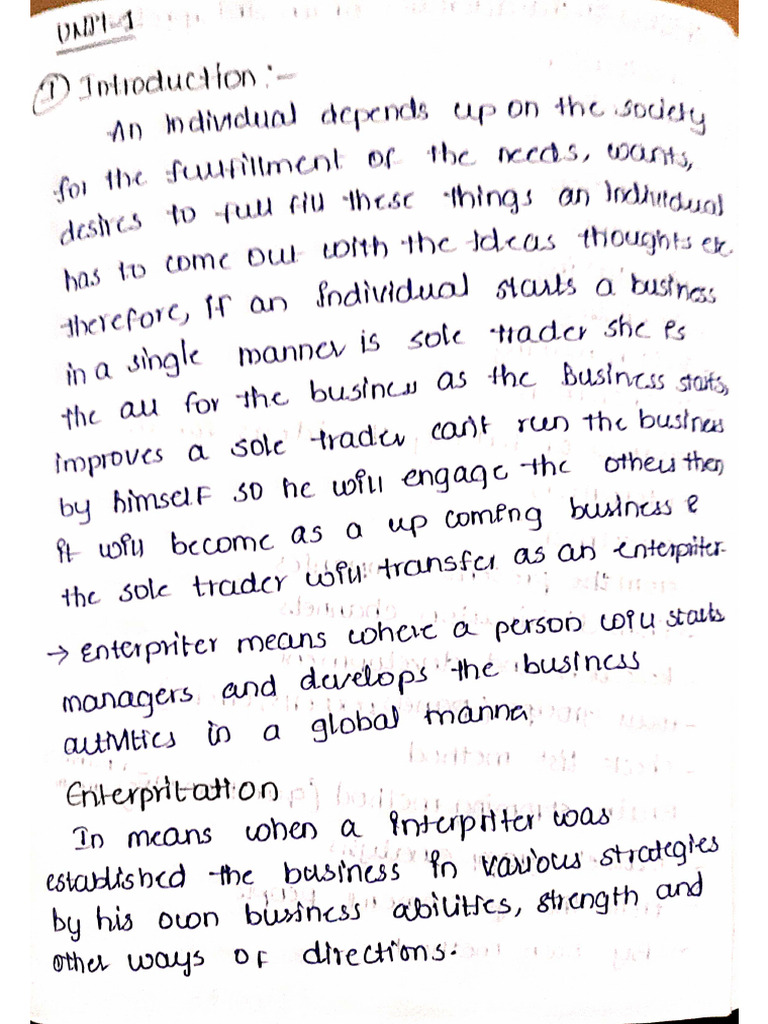 UNIT-1
① Introduction :-
An Individual depends up on the society
for the fullfillment of the needs, wants,
desires to full fill these things an Individual
has to come out with the Ideas thoughts etc
therefore, If an Individual starts a business
in a single manner is sole trader she is
the all for the business as the Business starts,
improves a sole trader can't run the business
by himself so he will engage the others then
it will become as a up coming business &
the sole trader will transfer as an enterpriter.
→ enterpriter means where a person will starts
managers and develops the business
activities in a global manner
Enterpritation
In means when a interpriter was
established the business in various strategies
by his own business abilities, strength and
other ways of directions.